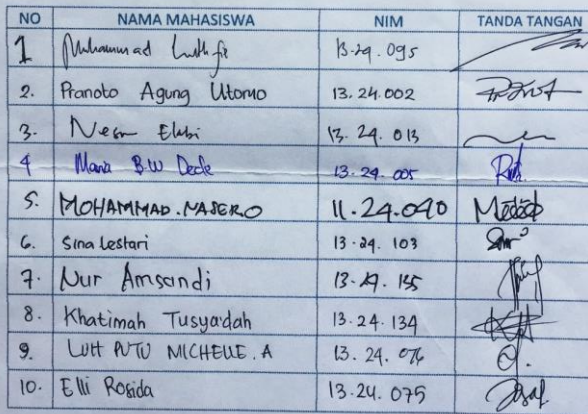 NO NAMA MAHASISWA NIM TANDA TANGAN
1 Muhammad Luthfie 13.24.095
2. Pranoto Agung Utomo 13.24.002
3. Elubi 13.24.013
4 Maria B.W Dede 13.24.005
5. MOHAMMAD.NASERO 11.24.040
6. Sina Lestari 13.24.103
7. Nur Amsandi 13.24.135
8. Khatimah Tusya'dah 13.24.134
9. LUH PUTU MICHELLE.A 13.24.076
10. Elli Rosida 13.24.075